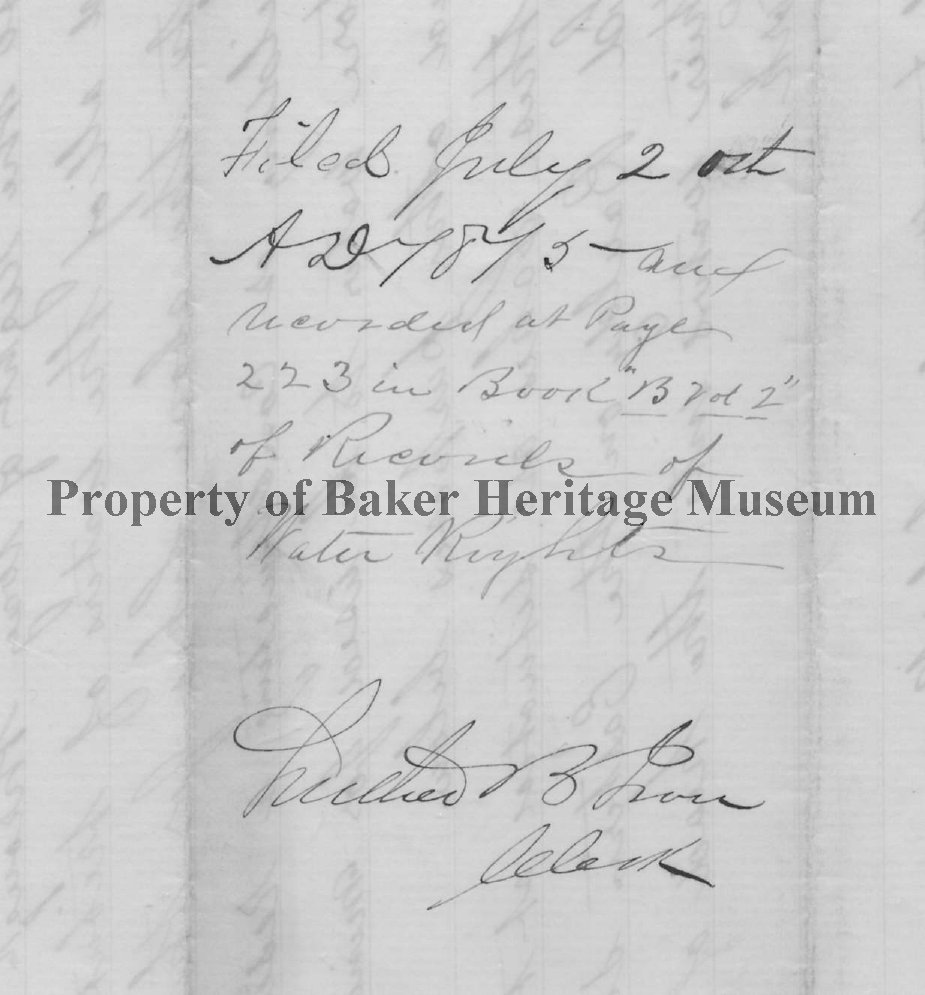 Filed July 20th
A D 1875 and
recorded at Page
223 in Book "B Vol 2"
of Records of
Property of Baker Heritage Museum
Water Rights
Luther B Ison
Clerk